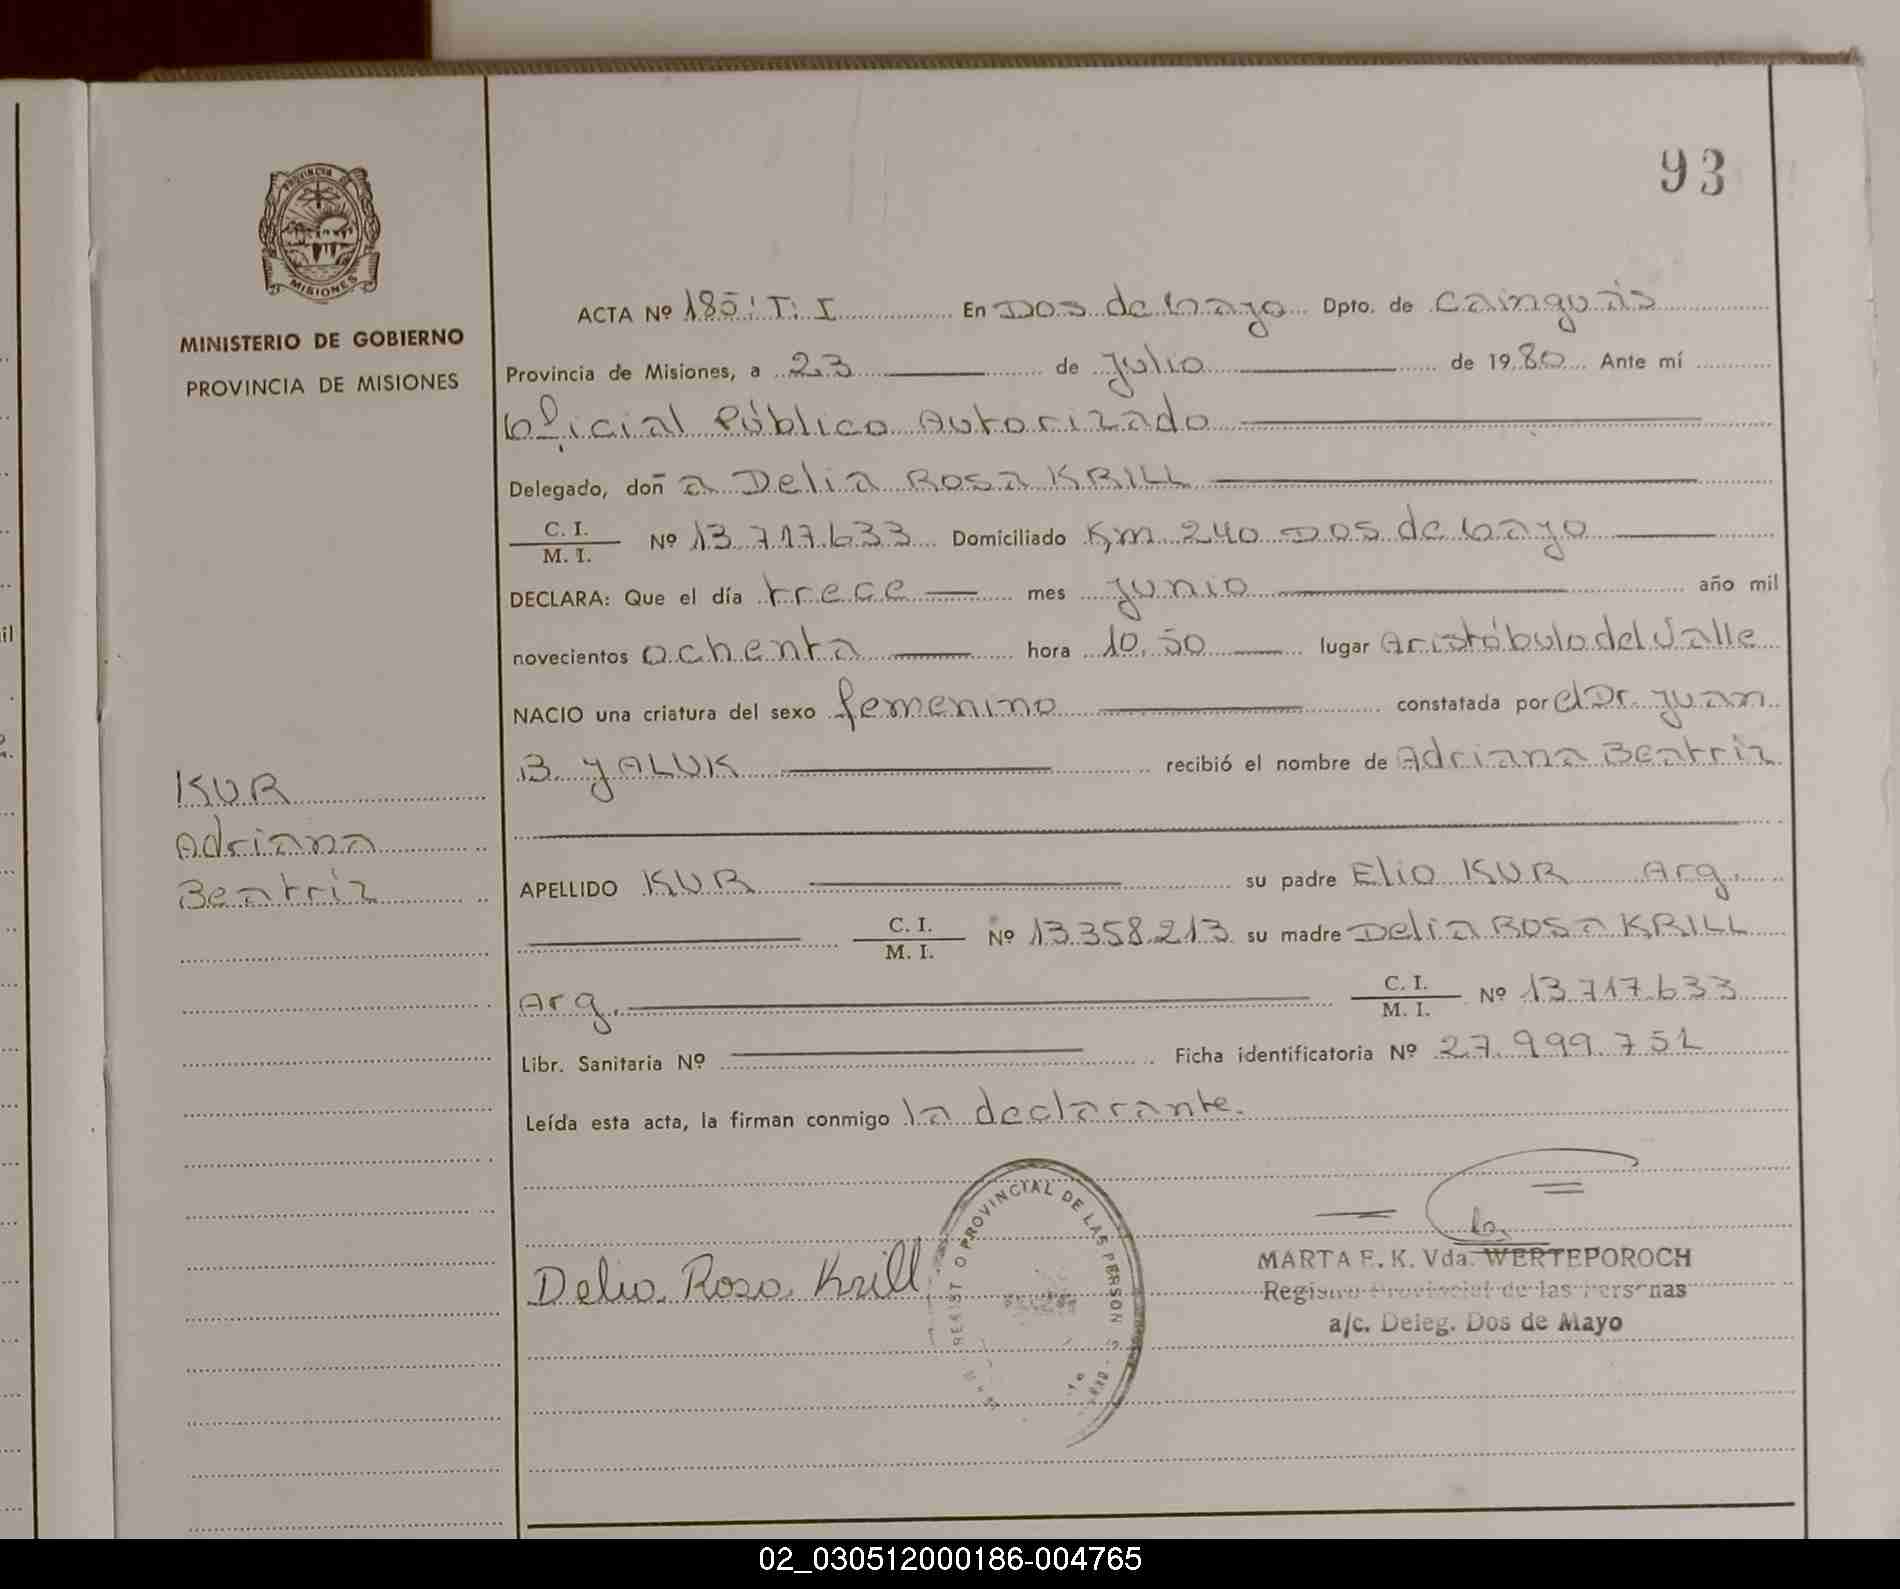 93
PROVINCIA DE
MISIONES
MINISTERIO DE GOBIERNO
PROVINCIA DE MISIONES
KUR
Adriana
Beatriz
ACTA Nº 185: T: I En Dos de Mayo Dpto. de Cainguás
Provincia de Misiones, a 23 de julio de 1980 Ante mí
Oficial Público Autorizado
Delegado, doña Delia Rosa KRILL
C. I.
M. I. Nº 13.717.633 Domiciliado Km 240 Dos de Mayo
DECLARA: Que el día trece mes junio año mil
novecientos ochenta hora 10,50 lugar Aristóbulo del Valle
NACIO una criatura del sexo femenino constatada por el Dr. Juan
B. YALUK recibió el nombre de Adriana Beatriz
APELLIDO KUR su padre Elio KUR Arg.
C. I.
M. I. Nº 13.358.213 su madre Delia Rosa KRILL
Arg. C. I.
M. I. Nº 13.717.633
Libr. Sanitaria Nº Ficha identificatoria Nº 27.999.751
Leída esta acta, la firman conmigo la declarante.
Delia Rosa Krill
PROVINCIAL DE LAS PERSON
MARTA E. K. Vda. WERTEPOROCH
Registro Provincial de las Personas
a/c. Deleg. Dos de Mayo
il
02_030512000186-004765